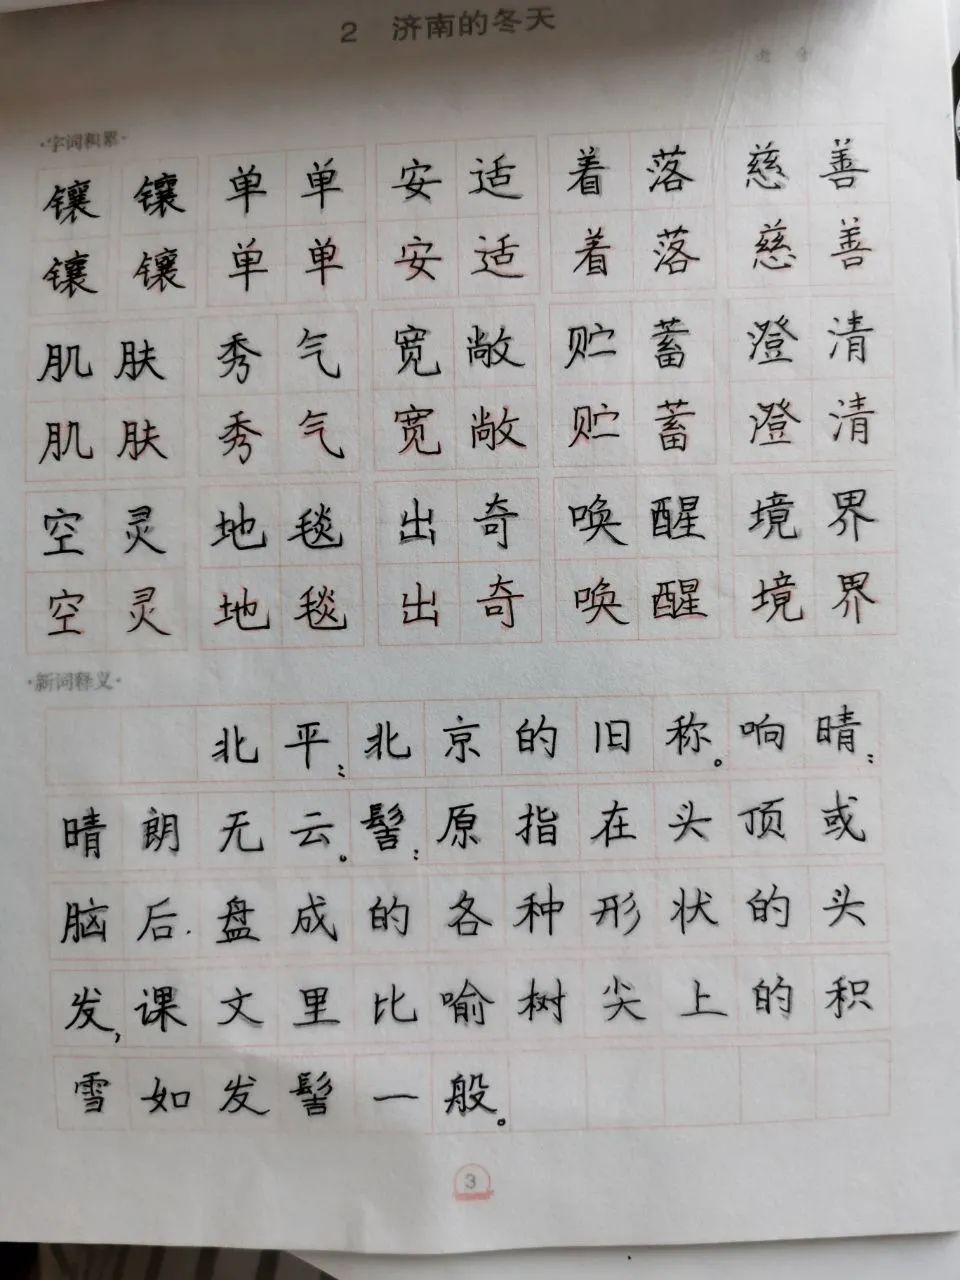 2 济南的冬天
老 舍
·字词积累·
镶 镶 单 单 安 适 着 落 慈 善
镶 镶 单 单 安 适 着 落 慈 善
肌 肤 秀 气 宽 敞 贮 蓄 澄 清
肌 肤 秀 气 宽 敞 贮 蓄 澄 清
空 灵 地 毯 出 奇 唤 醒 境 界
空 灵 地 毯 出 奇 唤 醒 境 界
·新词释义·
北平:北京的旧称。响晴:
晴朗无云。髻:原指在头顶或
脑后.盘成的各种形状的头
发,课文里比喻树尖上的积
雪如发髻一般。
3